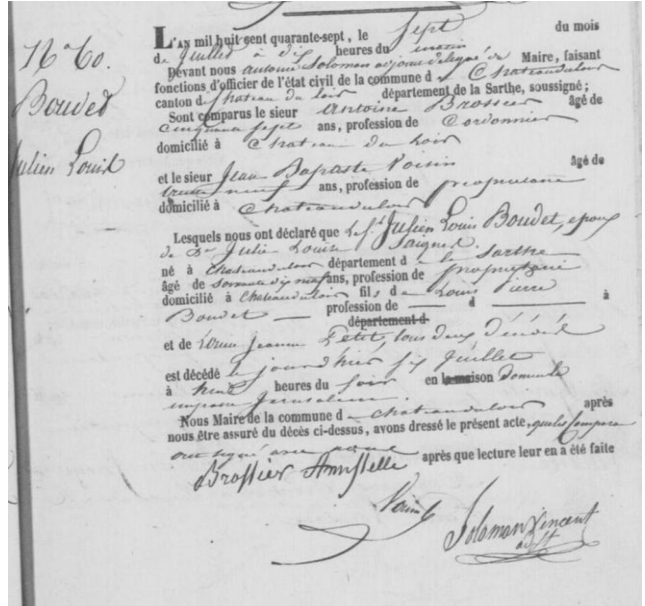 N° 60.
Boudet
Julien Louis
L'AN mil huit cent quarante-sept, le sept du mois
de Juillet à dix heures du matin
Devant nous antoine Solomon adjoint délégué du Maire, faisant
fonctions d'officier de l'état civil de la commune d Chateauduloir
canton de Chateau du loir département de la Sarthe, soussigné;
Sont comparus le sieur Antoine Brossier âgé de
cinquante sept ans, profession de Cordonnier
domicilié à Chateau du Loir
et le sieur Jean Baptiste Voisin âgé de
trente neuf ans, profession de propriétaire
domicilié à Chateauduloir
Lesquels nous ont déclaré que le Sr Julien Louis Boudet, époux
de De Julie Louise
né à Chateauduloir département d e la Sarthe
âgé de soixante dix neuf ans, profession de propriétaire
domicilié à Chateauduloir fils d e Louis Pierre
Boudet profession de d à
département d
et de Jeanne Petit, tous deux décédés
est décédé le jourd'hier six Juillet
à heures du soir en la maison
Jerusalem.
Nous Maire de la commune d e Chateauduloir après
nous être assuré du décès ci-dessus, avons dressé le présent acte, que les Compara
ont signé avec
après que lecture leur en a été faite
Brossier
Voisin
Solomon Vincent
adjt